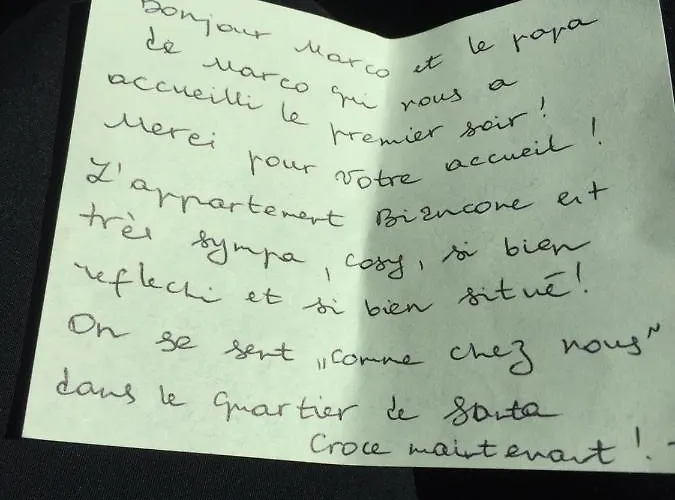 Bonjour Marco et le papa
de Marco qui nous a
accueilli le premier soir!
Merci pour votre accueil!
L'appartement Biancone est
très sympa, cosy, si bien
reflechi et si bien situé!
On se sent „comme chez nous"
dans le quartier de Santa
Croce maintenant!